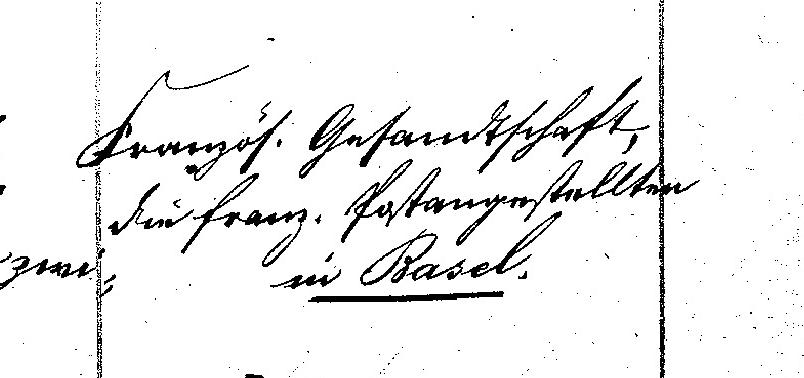 Französ. Gesandtschaft,
die franz. Postangestellten
zwi=
in Basel.